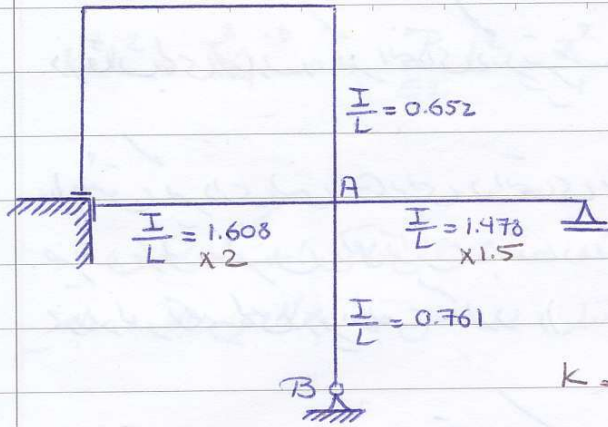 I/L = 0.652
A
I/L = 1.608
×2
I/L = 1.478
×1.5
I/L = 0.761
B
K =